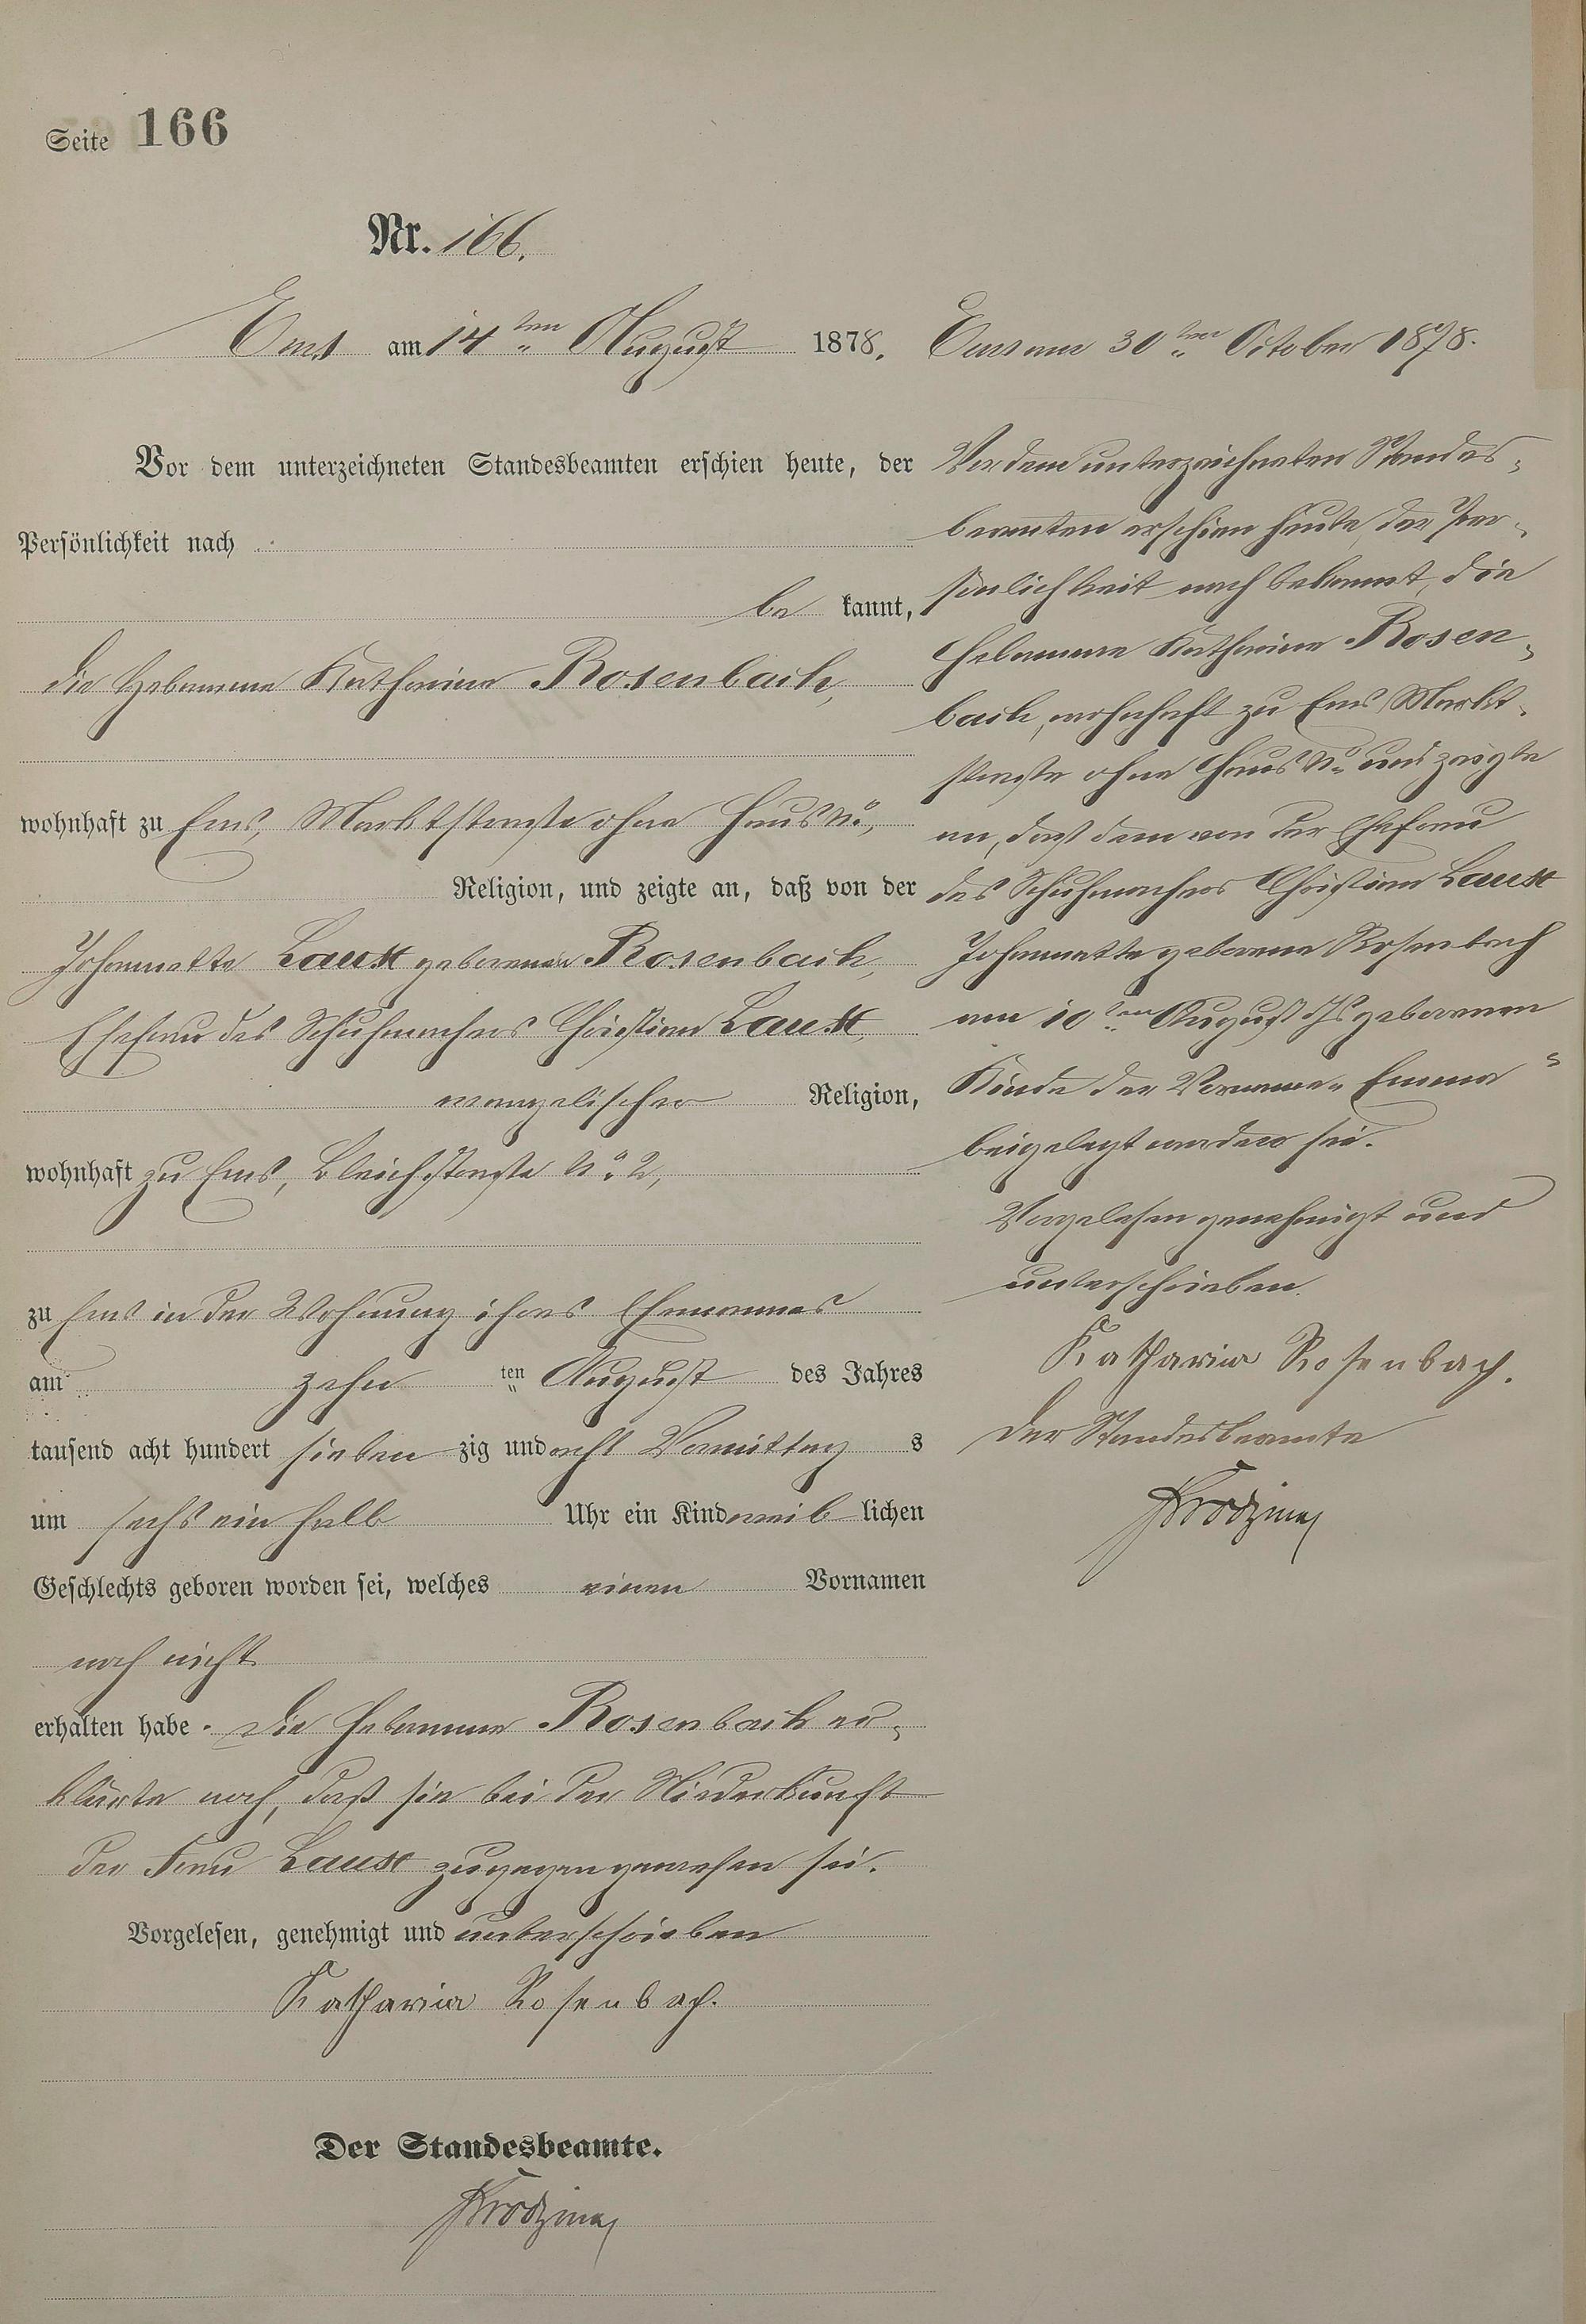 Seite 166
Nr. 166.
Ems am 14ten August 1878.
Vor dem unterzeichneten Standesbeamten erschien heute, der
Persönlichkeit nach
be kannt,
die Hebamme Katharina Rosenbach,
wohnhaft zu Ems, Marktstraße ohne Haus No,
Religion, und zeigte an, daß von der
Johannette Laux geborenen Rosenbach,
Ehefrau des Schuhmachers Christian Laux,
evangelischer Religion,
wohnhaft zu Ems, Bleichstraße No 2,
zu Ems in der Wohnung ihres Ehemannes
am zehn ten August des Jahres
tausend acht hundert sieben zig und acht Vormittag s
um sechs ein halb Uhr ein Kind weib lichen
Geschlechts geboren worden sei, welches einen Vornamen
noch nicht
erhalten habe. Die Hebamme Rosenbach er-
klärte noch, daß sie bei der Niederkunft
der Frau Laux zugegen gewesen sei.
Vorgelesen, genehmigt und unterschrieben
Katharina Rosenbach.
Der Standesbeamte.
Ems am 30ten October 1878.
Vor dem unterzeichneten Standes-
beamten erschien heute, der Per-
sönlichkeit nach bekannt, die
Hebamme Katharina Rosen-
bach, wohnhaft zu Ems Markt-
straße ohne Haus No und zeigte
an, daß dem von der Ehefrau
des Schuhmachers Christian Laux
Johannette geborene Rosenbach
am 10ten August d Js geborenen
Kinde der Vorname "Emma"
beigelegt worden sei.
Vorgelesen genehmigt und
unterschrieben.
Katharina Rosenbach.
Der Standesbeamte